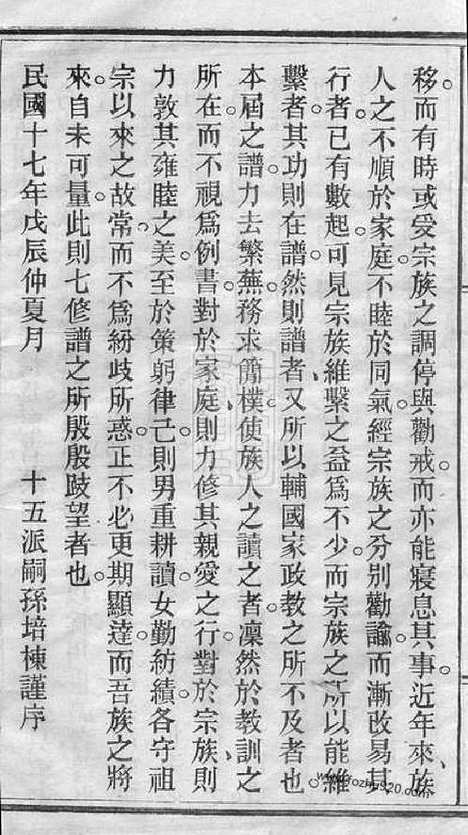 移而有時或受宗族之調停與勸戒而亦能寢息其事。近年來、族
人之不順於家庭不睦於同氣經宗族之分別勸諭而漸改易其
行者已有數起。可見宗族維繫之益爲不少。而宗族之所以能維
繫者其功則在譜。然則譜者、又所以輔國家政教之所不及者也。
本屆之譜。力去繁蕪、務求簡樸、使族人之讀之者。凜然於教訓之
所在而不視爲例書。對於家庭、則力修其親愛之行。對於宗族、則
力敦其雍睦之美。至於策躬律己。則男重耕讀。女勤紡績。各守祖
宗以來之故常。而不爲紛歧所惑。正不必更期顯達。而吾族之將
來自未可量。此則七修譜之所殷殷跂望者也。
民國十七年戊辰仲夏月　十五派嗣孫培棟謹序